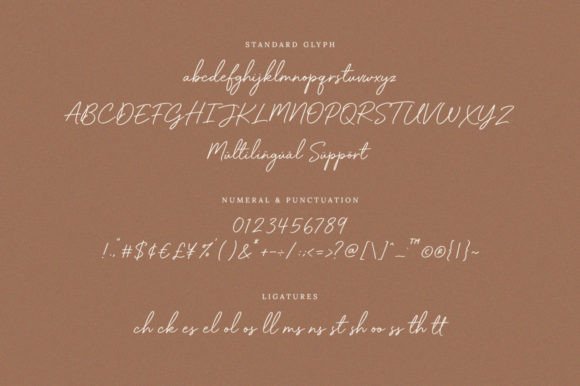 STANDARD GLYPH
abcdefghijklmnopqrstuvwxyz
ABCDEFGHIJKLMNOPQRSTUVWXYZ
Múltilingúàl Süppört
NUMERAL & PUNCTUATION
0123456789
!.,"#$¢€£¥%'()&*+-÷/:;<=>?@[\]^_¨™©®{|}~
LIGATURES
ch ck es el ol os ll ms ns st sh oo ss th tt